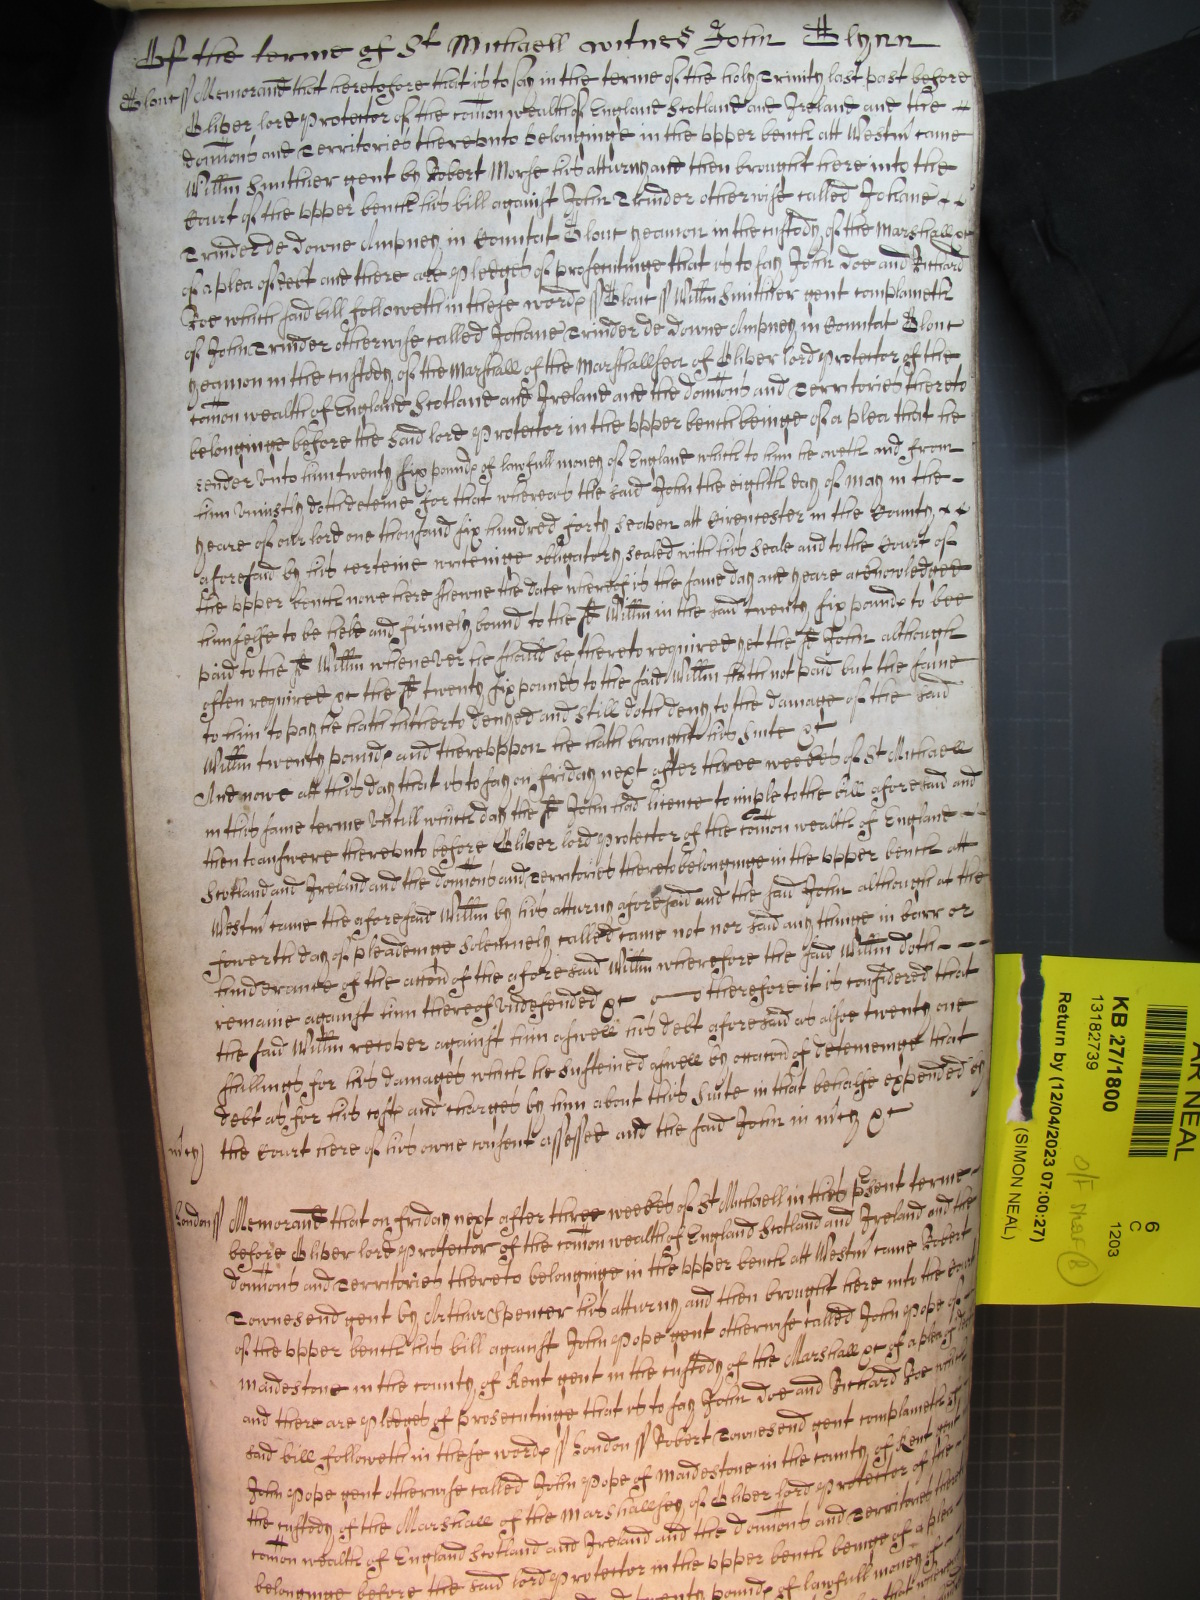 Of the terme of St Michaell witnes John Glynn
Glouc ss Memorand that heretofore that is to say in the terme of the holy Trinity last past before
Oliver lord Protector of the comon wealth of England Scotland and Ireland and the
domions and Territories thereunto belonginge in the upper bench att Westm came
Willm Smither gent by Robert Morse his atturny and then brought here into the
Court of the upper bench his bill against John Trinder otherwise called Johane
Trinder de Downe Ampney in Comitat Glouc yeamon in the custody of the Marshall &c
of a plea of debt and there are pledges of prosecutinge that is to say John Doe and Richard
Roe which said bill followeth in these words ss Glouc ss Willm Smither gent complaineth
of John Trinder otherwise called Johane Trinder de Downe Ampney in Comitat Glouc
yeamon in the custody of the Marshall of the Marshallsea of Oliver lord Protector of the
comon wealth of England Scotland and Ireland and the domions and Territories thereto
belonginge before the said lord Protector in the upper bench beinge of a plea that he
render unto him twenty six pounds of lawfull money of England which to him he oweth and from
him uniustly doth deteine for that whereas the said John the eighth day of May in the
yeare of our lord one thousand six hundred forty seaven att Cirencester in the County
aforesaid by his certeine writeinge obligatory sealed with his seale and to the Court of
the upper bench nowe here shewne the date whereof is the same day and yeare acknowledged
himselfe to be held and firmely bound to the sd Willm in the said twenty six pounds to bee
paid to the sd Willm whenever he should be thereto required yet the sd John although
often required &c the sd twenty six pounds to the said Willm hath not paid but the same
to him to pay he hath hitherto denyed and still doth deny to the damage of the said
Willm twenty pounds and thereuppon he hath brought his suite &c
And nowe att this day that is to say on Friday next after three weekes of St Michaell
in this same terme untill which day the sd John had licence to imple to the bill aforesaid and
then to answere thereunto before Oliver lord Protector of the comon wealth of England
Scotland and Ireland and the domions and Territories thereto belonginge in the upper bench att
Westm came the aforesaid Willm by his atturny aforesaid and the said John although at the
fowerth day of pleadeinge solemnely called came not nor said any thinge in barr or
hinderance of the accon of the aforesaid Willm wherefore the said Willm doth
remaine against him thereof undefended &c therefore it is considered that
the said Willm recover against him aswell his debt aforesaid as alsoe twenty one
shillings for his damages which he susteined aswell by occacon of deteineinge that
debt as for his costs and charges by him about this suite in that behalfe expended by
mcy the Court here of his owne consent assessed and the said John in mcy &c
London ss Memorand that on Friday next after three weekes of St Michaell in this present terme
before Oliver lord Protector of the comon wealth of England Scotland and Ireland and the
domions and Territories thereto belonginge in the upper bench att Westm came Robert
Townesend gent by Arthur Spencer his atturny and then brought here into the Court
of the upper bench his bill against John Pope gent otherwise called John Pope of
Maidestone in the county of Kent gent in the custody of the Marshall &c of a plea of debt
and there are pledges of prosecutinge that is to say John Doe and Richard Roe which
said bill followeth in these words ss London ss Robert Townesend gent complaineth of
John Pope gent otherwise called John Pope of Maidestone in the county of Kent gent
the custody of the Marshall of the Marshallsey of Oliver lord Protector of the
comon wealth of England Scotland and Ireland and the domions and Territories there
belonginge before the said lord Protector in the upper bench beinge of a plea
twenty pounds of lawfull money of
AR NEAL
KB 27/1800
13182739
Return by (12/04/2023 07:00:27)
(SIMON NEAL)
6
C
1203
O/F Shelf (8)